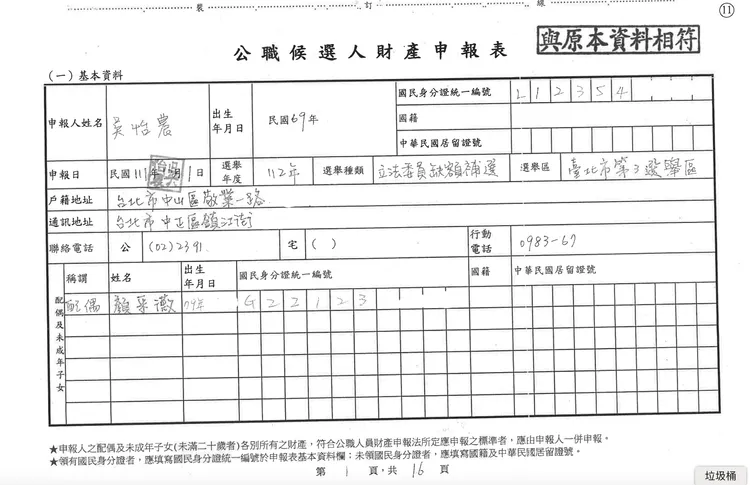 裝 訂 線
⑪
公職候選人財產申報表 與原本資料相符
（一）基本資料
申報人姓名 吳怡農 出生年月日 民國69年 國民身分證統一編號 L12354
國籍
中華民國居留證號
申報日 民國111年 月1日 選舉年度 112年 選舉種類 立法委員缺額補選 選舉區 臺北市第3選舉區
戶籍地址 台北市中山區敬業一路
通訊地址 台北市中正區鎮江街
聯絡電話 公 (02)2391 宅 ( ) 行動電話 0983-67
配偶及未成年子女
稱謂 姓名 出生年月日 國民身分證統一編號 國籍 中華民國居留證號
配偶 顏采 年 G22123
★申報人之配偶及未成年子女(未滿二十歲者)各別所有之財產，符合公職人員財產申報法所定應申報之標準者，應由申報人一併申報。
★領有國民身分證者，應填寫國民身分證統一編號於申報表基本資料欄；未領有國民身分證者，應填寫國籍及中華民國居留證號。
第 1 頁，共 16 頁
垃圾桶